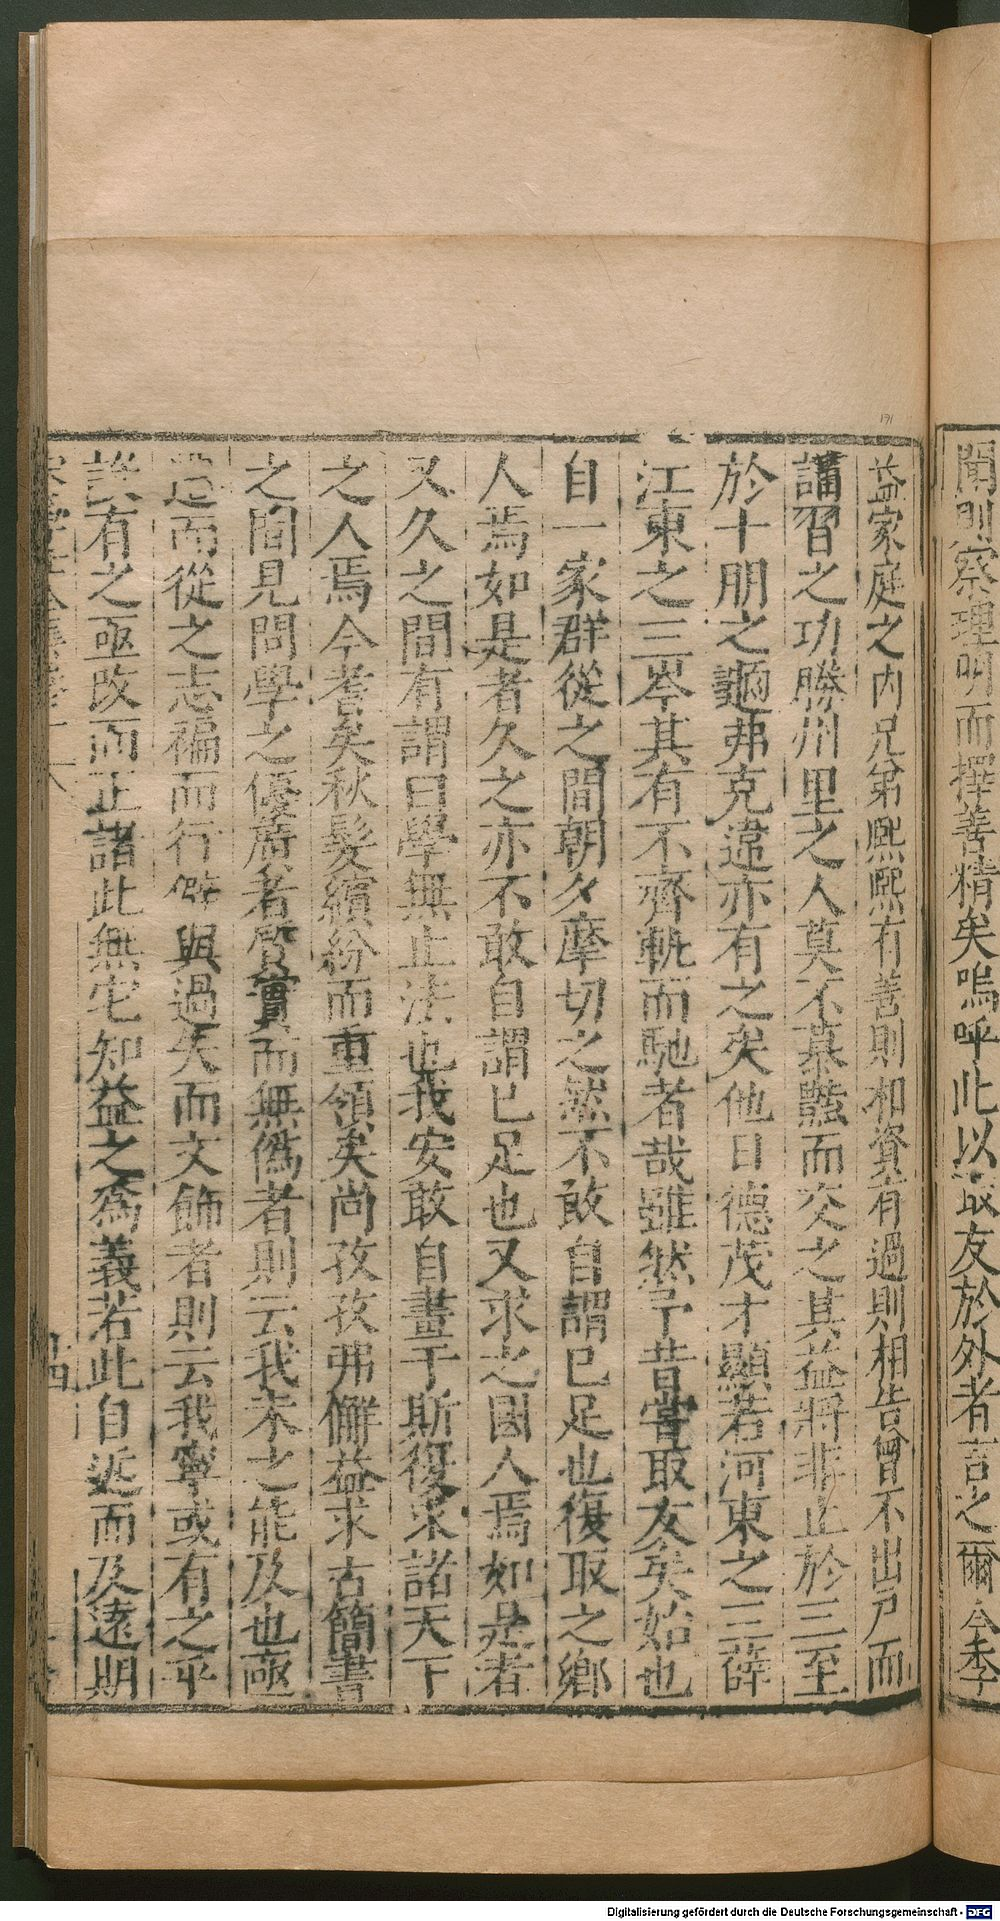 聞則察理明而擇善精矣嗚呼此以取友於外者言之爾今季
益家庭之內兄弟熙熙有善則相資有過則相告曾不出戶而
講習之功勝州里之人莫不慕豔而交之其益將非止於三至
於十朋之龜弗克違亦有之矣他日德茂才顯若河東之三薛
江東之三岑其有不齊軌而馳者哉雖然予昔嘗取友矣始也
自一家群從之間朝夕摩切之然不敢自謂已足也復取之鄉
人焉如是者久之亦不敢自謂已足也又求之國人焉如是者
又久之間有謂曰學無止法也我安敢自畫于斯復求諸天下
之人焉今耄矣秋髮繽紛而重領矣尚孜孜弗懈益求古簡書
之間見問學之優廣者質實而無偽者則云我未之能及也亟
遵而從之志褊而行僻與過失而文飾者則云我寧或有之乎
誠有之亟改而正諸此無它知益之為義若此自近而及遠期
Digitalisierung gefördert durch die Deutsche Forschungsgemeinschaft - DFG